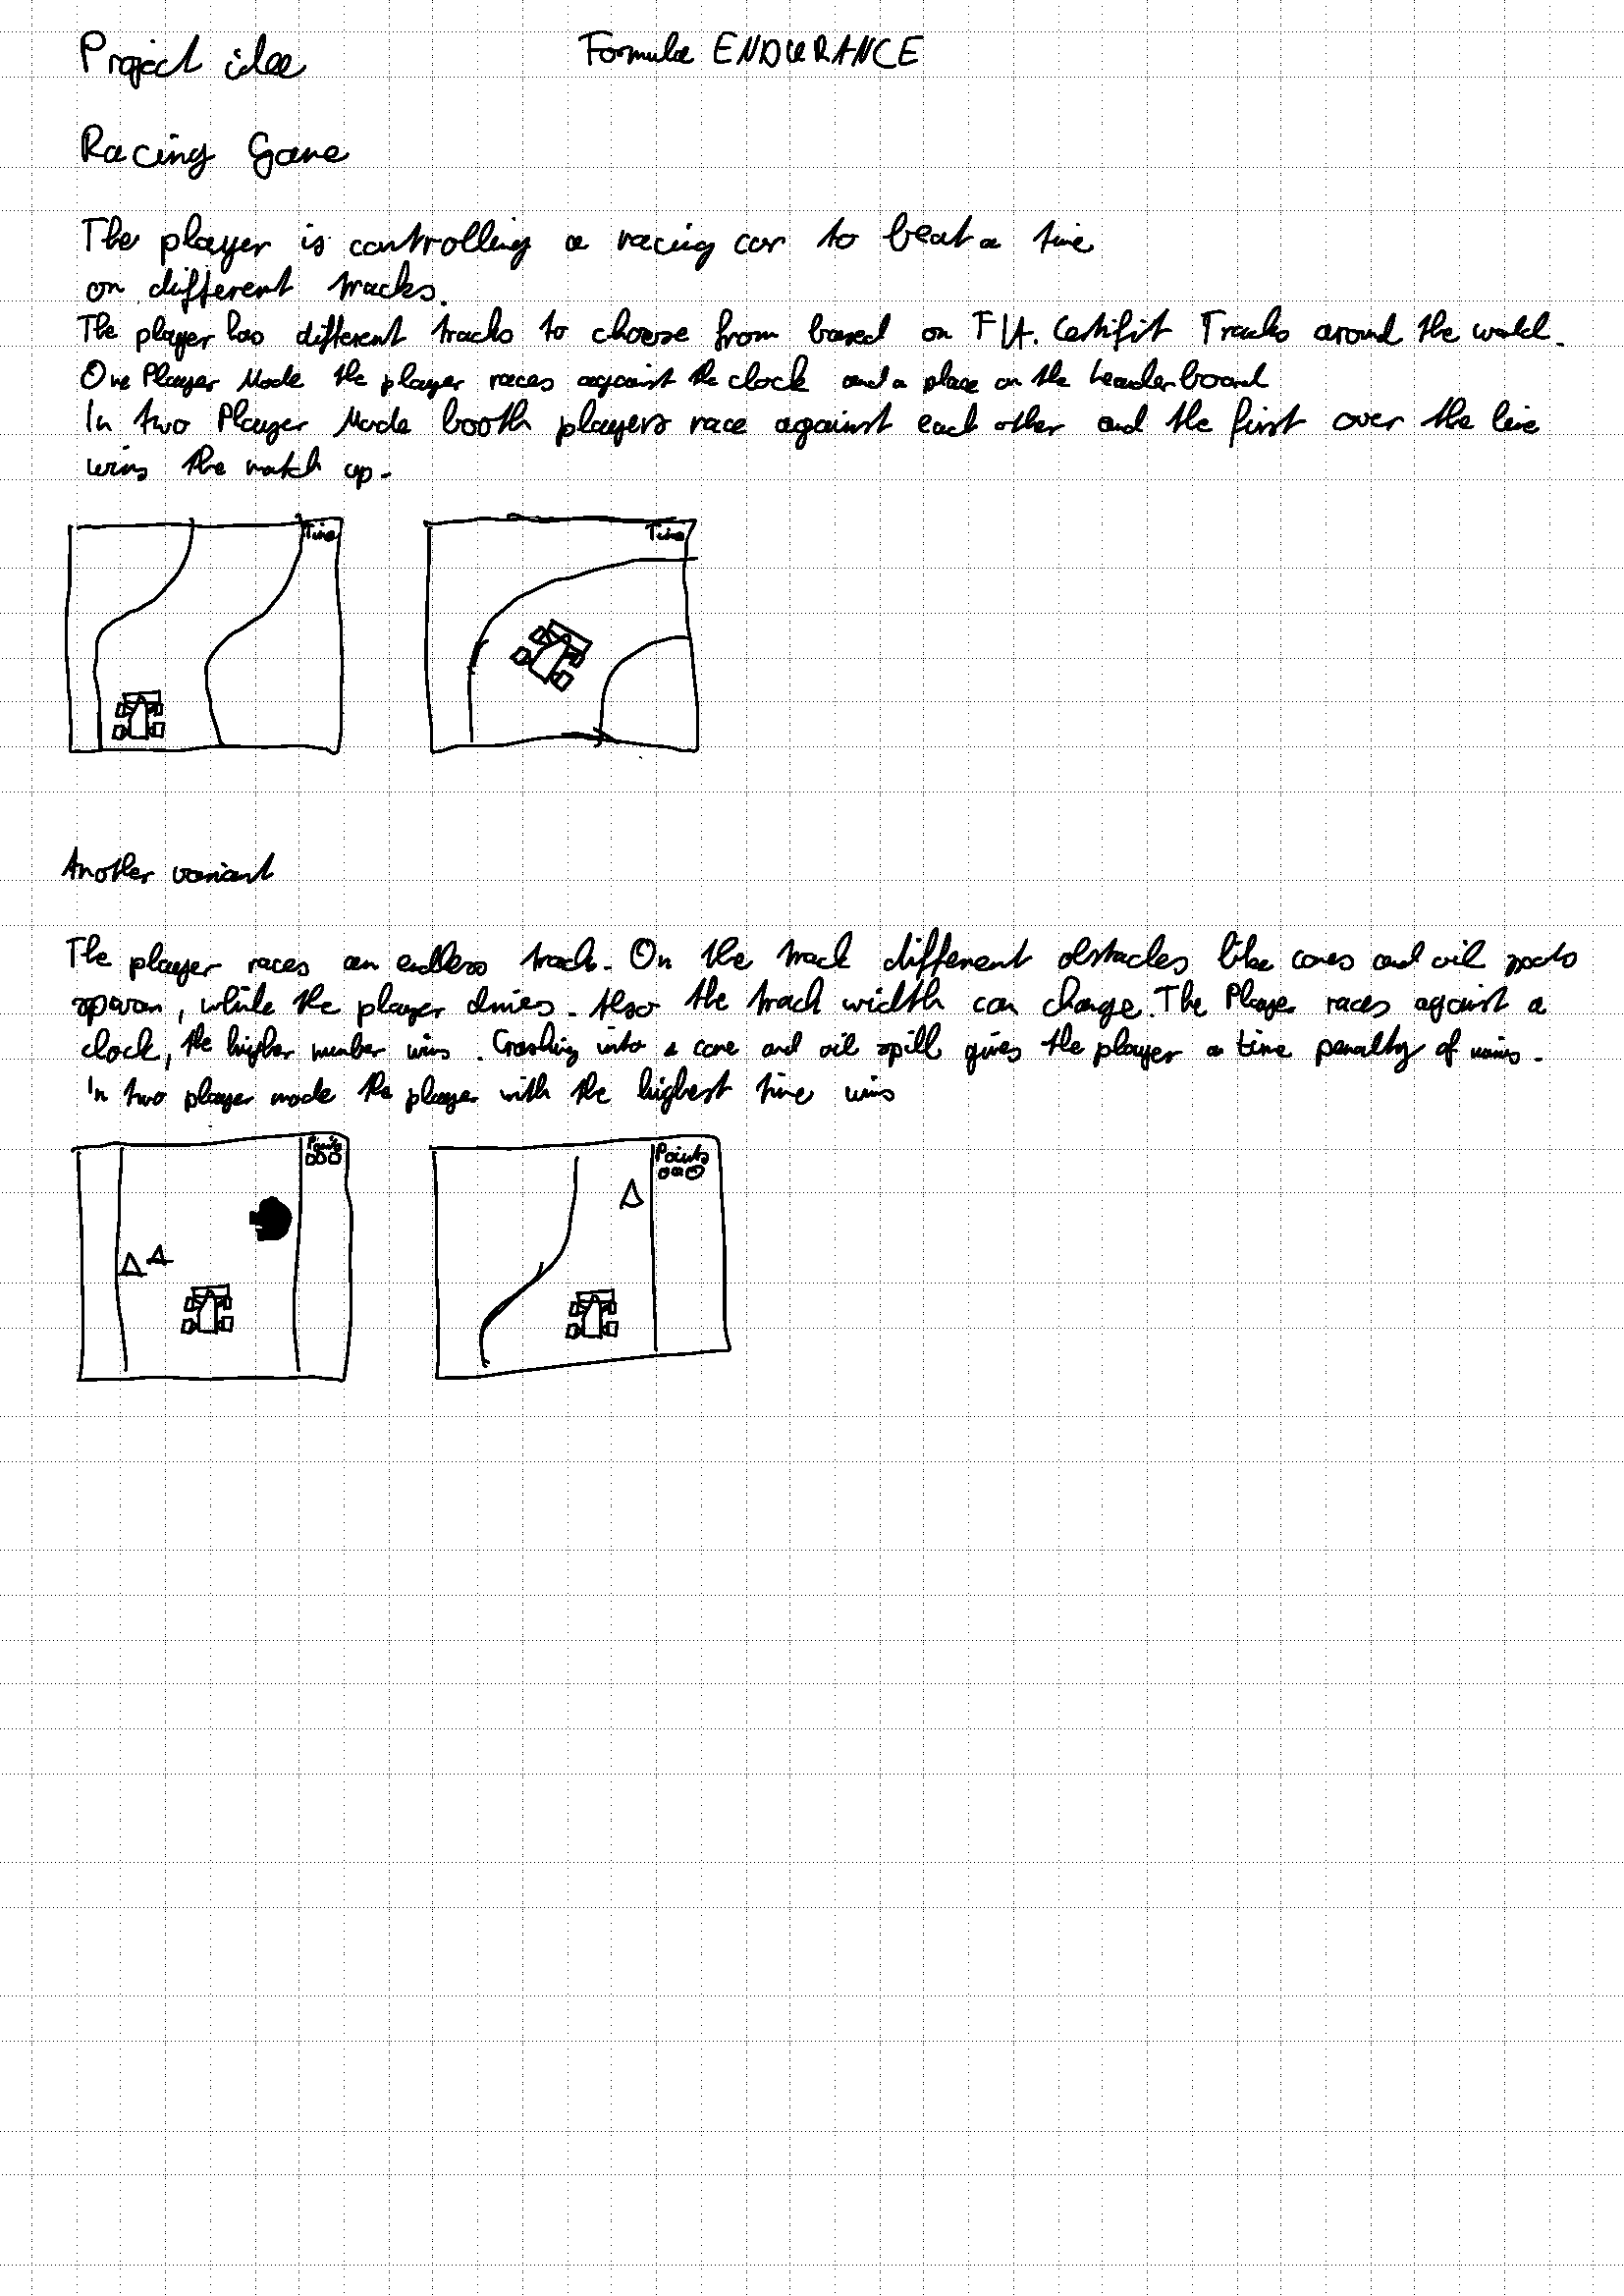 Project idee
Formula ENDURANCE
Racing Game
The player is controlling a racing car to beat a time
on different tracks.
The player has different tracks to choose from based on FIA. Certifit Tracks around the world.
One Player Mode the player races against the clock and a place on the Leaderboard
In two Player Mode booth players race against each other and the first over the line
wins the match up.
Time
Time
Another variant
The player races an endless track. On the track different obstacles like cones and oil spots
spawn, while the player drives. Also the track width can change. The Player races against a
clock, the higher number wins. Crashing into a cone and oil spill gives the player a time penalty of
In two player mode the player with the highest time wins
Points
000
Points
000